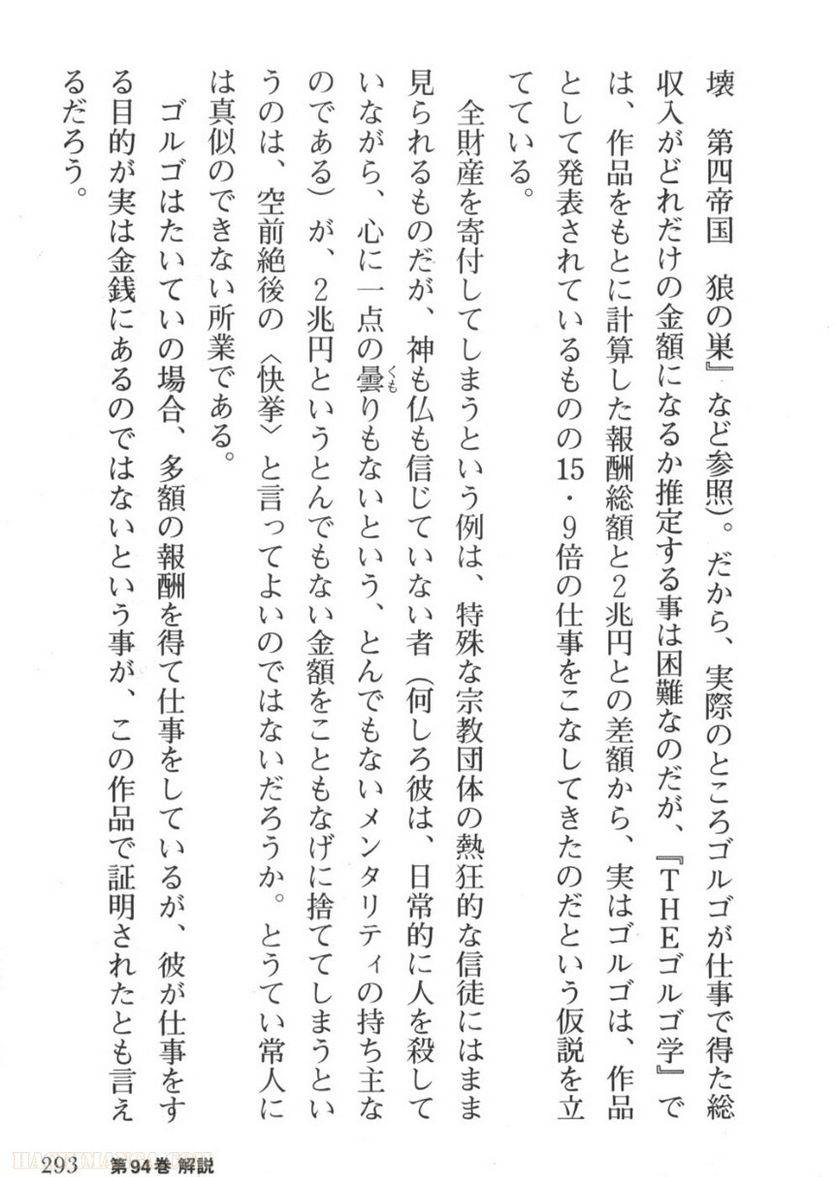 壊　第四帝国　狼の巣』など参照)。だから、実際のところゴルゴが仕事で得た総
収入がどれだけの金額になるか推定する事は困難なのだが、『THEゴルゴ学』で
は、作品をもとに計算した報酬総額と2兆円との差額から、実はゴルゴは、作品
として発表されているものの15・9倍の仕事をこなしてきたのだという仮説を立
てている。
　全財産を寄付してしまうという例は、特殊な宗教団体の熱狂的な信徒にはまま
見られるものだが、神も仏も信じていない者(何しろ彼は、日常的に人を殺して
いながら、心に一点の曇りもないという、とんでもないメンタリティの持ち主な
のである)が、2兆円というとんでもない金額をこともなげに捨ててしまうとい
うのは、空前絶後の〈快挙〉と言ってよいのではないだろうか。とうてい常人に
は真似のできない所業である。
　ゴルゴはたいていの場合、多額の報酬を得て仕事をしているが、彼が仕事をす
る目的が実は金銭にあるのではないという事が、この作品で証明されたとも言え
るだろう。
293　第94巻 解説